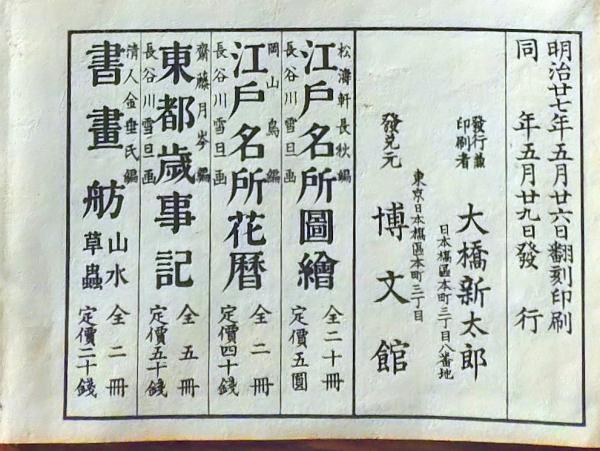 明治廿七年五月廿六日翻刻印刷
同年五月廿九日發行
發行兼
印刷者
大橋新太郎
日本橋區本町三丁目八番地
東京日本橋區本町三丁目
發兌元
博文館
松濤軒長秋編
江戶名所圖繪
長谷川雪旦画
全二十冊
定價五圓
岡山鳥編
江戶名所花曆
長谷川雪旦画
全二冊
定價四十錢
齋藤月岑編
東都歲事記
長谷川雪旦画
全五冊
定價五十錢
清人金垂氏編
書畫舫
山水
草蟲
全二冊
定價二十錢